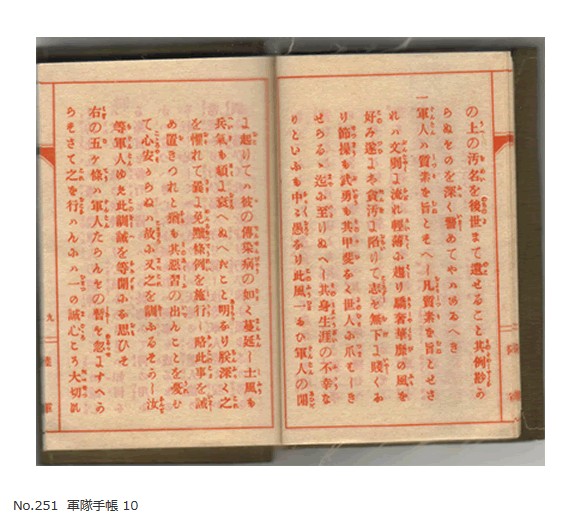 の上の汚名を後世まて遺せること其例尠か
らぬものを深く警めてやはあるへき
一軍人は質素を旨とすへし凡質素を旨とせさ
れは文弱に流れ輕薄に趨り驕奢華靡の風を
好み遂には貪汚に陷りて志も無下に賤くな
り節操も武勇も其甲斐なく世人に爪はしき
せらるゝ迄に至りぬへし其身生涯の不幸な
りといふも中々愚なり此風一たひ軍人の間
に起りては彼の傳染病の如く蔓延し士風も
兵氣も頓に衰へぬへきこと明なり朕深く之
を懼れて曩に免黜條例を施行し略此事を誡
め置きつれと猶も其惡習の出んことを憂ひ
て心安からねは故に又之を訓ふるそかし汝
等軍人ゆめ此訓誡を等閒にな思ひそ
右の五ケ條は軍人たらんもの暫も忽にすへか
らすさて之を行はんには一の誠心こそ大切な
九
陸軍
No.251 軍隊手帳 10